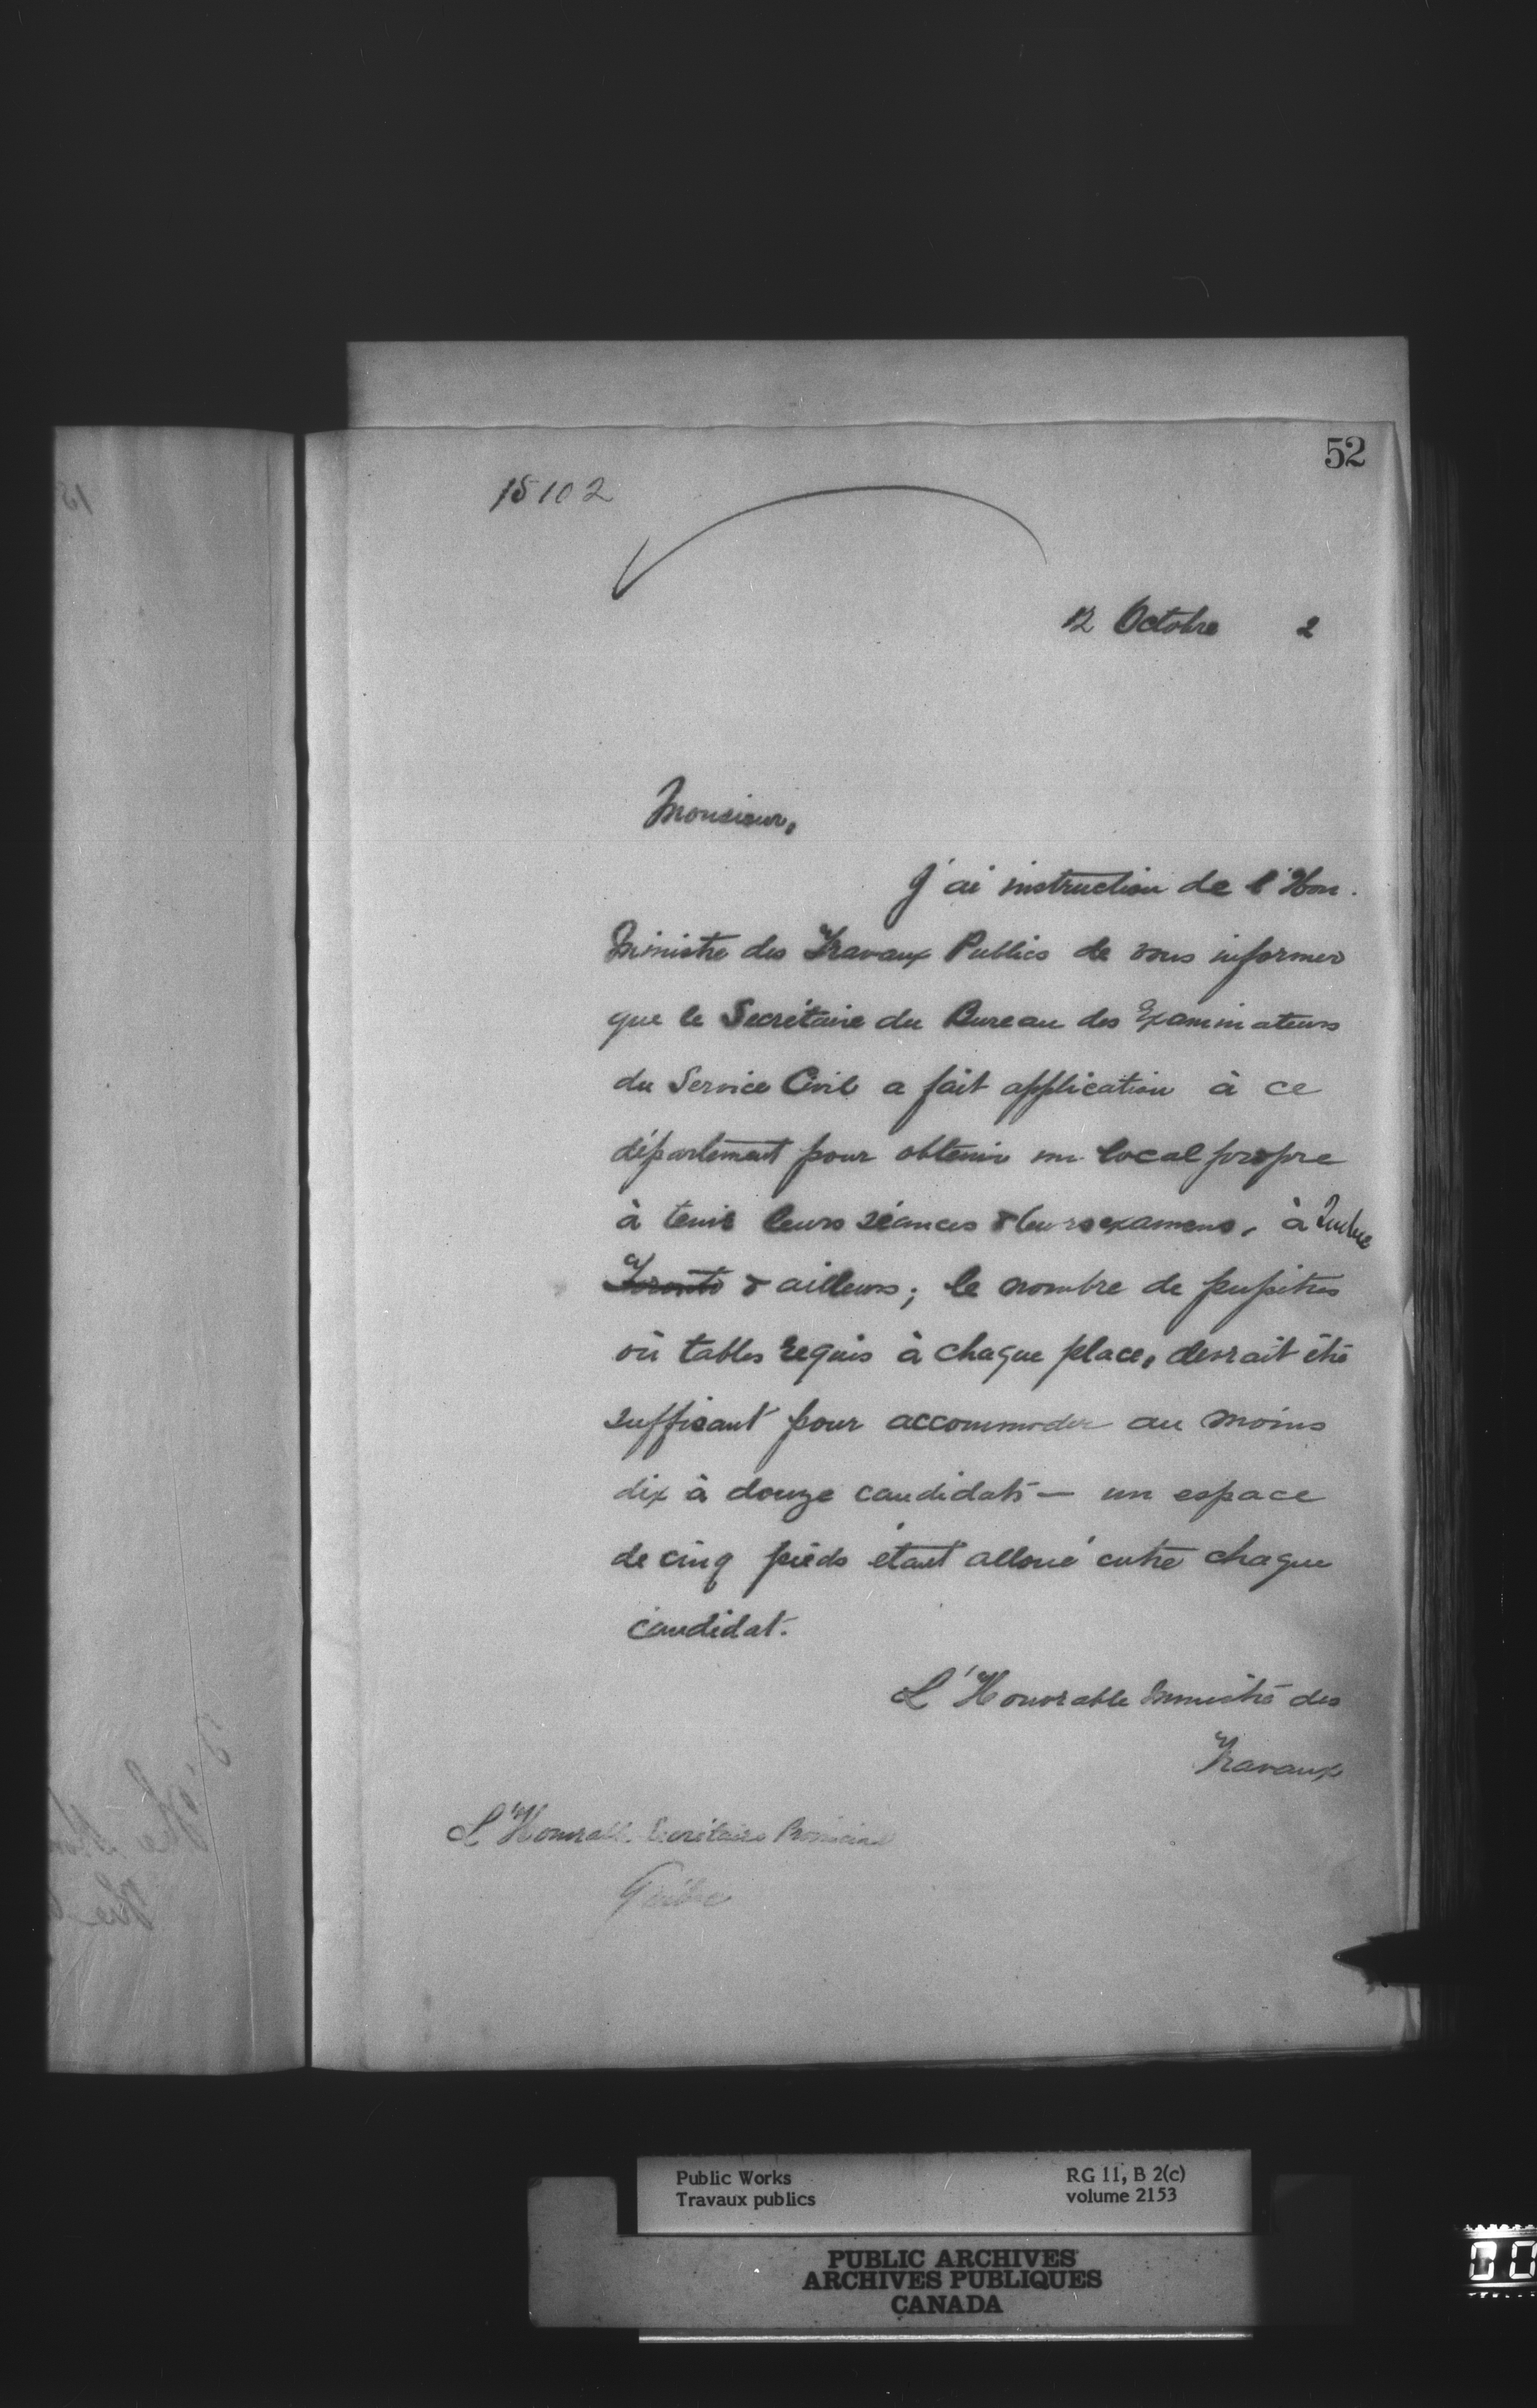 52
15102
12 Octobre 2
Monsieur,
J'ai instruction de l'Hon.
Ministre des Travaux Publics de vous informer
que le Secrétaire du Bureau des Examinateurs
du Service Civil a fait application à ce
département pour obtenir un local propre
à tenir leurs séances & leurs examens, à Quebec
Toronto & ailleurs; le nombre de pupitres
où tables requis à chaque place, devrait être
suffisant pour accommoder au moins
dix à douze candidats — un espace
de cinq pieds étant alloué entre chaque
candidat.
L'Honorable Ministre des
Travaux
L'Honorable Secrétaire Provincial
Québec
Public Works
Travaux publics
RG 11, B 2(c)
volume 2153
PUBLIC ARCHIVES
ARCHIVES PUBLIQUES
CANADA
00